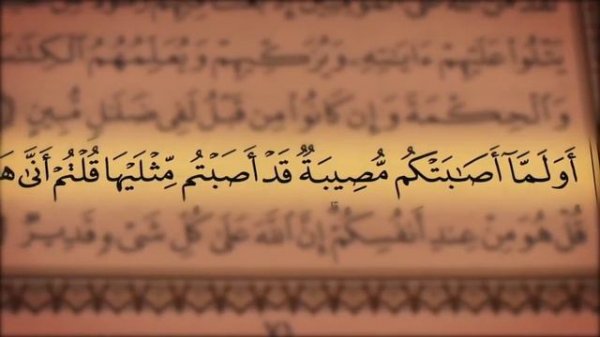 يَتْلُوا۟ عَلَيْهِمْ ءَايَٰتِهِۦ وَيُزَكِّيهِمْ وَيُعَلِّمُهُمُ
وَٱلْحِكْمَةَ وَإِن كَانُوا۟ مِن قَبْلُ لَفِى ضَلَٰلٍ مُّبِينٍ
أَوَلَمَّآ أَصَٰبَتْكُم مُّصِيبَةٌ قَدْ أَصَبْتُم مِّثْلَيْهَا قُلْتُمْ أَنَّىٰ هَ
قُلْ هُوَ مِنْ عِندِ أَنفُسِكُمْ إِنَّ ٱللَّهَ عَلَىٰ كُلِّ شَىْءٍ قَدِيرٌ